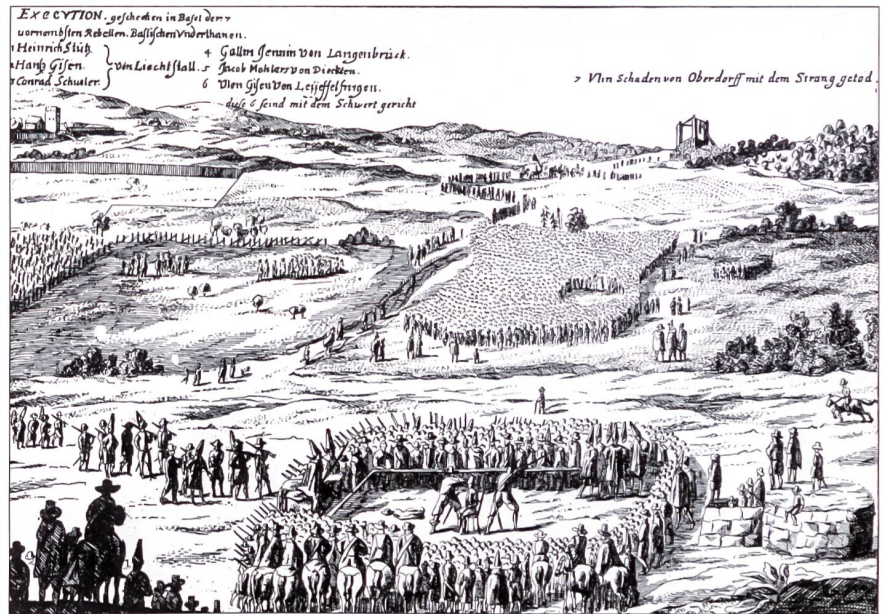 EXECVTION. geschechen in Basel der 7
vornembsten Rebellen. Bassischen Vnderthanen.
1 Heinrich Stütz.
2 Hanß Gisen. } von Liechstall.
3 Conrad Schuoler.
4 Gallin Jennin von Langenbrück.
5 Jacob Mohlers von Dieckten.
6 Vlen Gisen von
diese 6 seind mit dem Schwert gericht
7 Vlin Schaden von Oberdorff mit dem Strang getod.